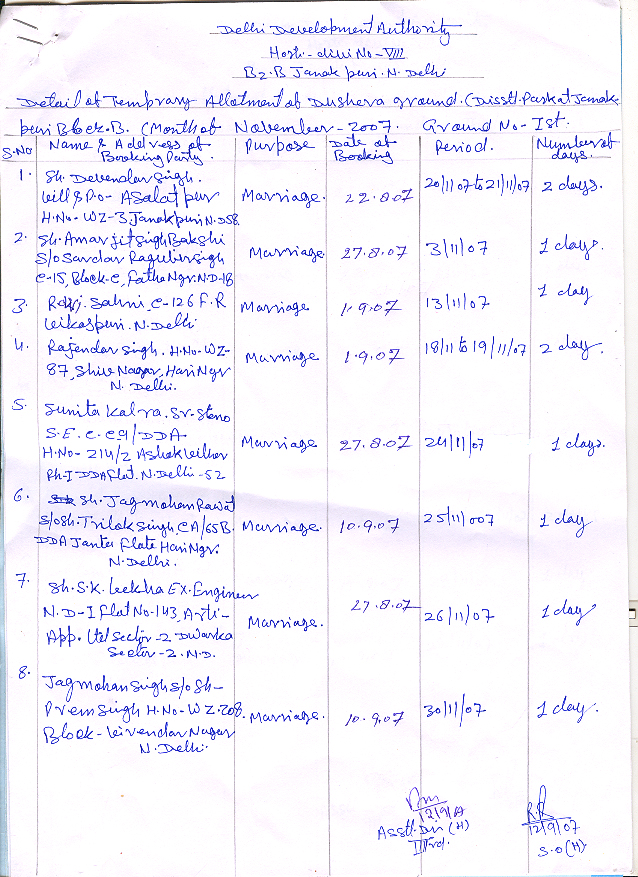 Delhi Development Authority
Horti. divi No - VIII
B2.B Janak puri. N. Delhi
Detail of Temprary Allotment of Dushera ground. (Disstt. Park at Janak
puri Block. B. (Month of November - 2007. Ground No - Ist.
S.No Name & Address of Booking Party. Purpose Date of Booking Period. Number of days.
1. Sh. Devendar Singh.
Vill & P.O - Asalat pur Marriage 22.8.07 20/11/07 to 21/11/07 2 days.
H.No - WZ-3 Janakpuri N.D 58.
2. Sh. Amarjit Sigh Bakshi
S/o Sardar Ragubir Sigh Marriage 27.8.07 3/11/07 1 days.
C-15, Block-C, Fathe Ngr. N.D-18
3. Sahni, C-126 F.R Marriage 1.9.07 13/11/07 1 day
Vikaspuri. N. Delhi
4. Rajendar Singh. H.No - WZ- Marriage 1.9.07 18/11 to 19/11/07 2 day.
87, Shiv Nagar, Hari Ngr
N. Delhi.
5. Sunita Kalra. Sr. Steno
S.E. C.C 9/DDA Marriage 27.8.07 24/11/07 1 days.
H.No - 214/2 Ashok Vihar
Ph-I DDA Flat. N. Delhi - 52
6. Sh. Jagmohan Rawat
S/o Sh. Trilok Singh, CA/65B. Marriage. 10.9.07 25/11/007 1 day
DDA Janta Flate Hari Ngr.
N. Delhi.
7. Sh. S.K. Leekha EX. Engineer 27.8.07
N.D-I Flat No-143, Marriage. 26/11/07 1 day
App. Sector-2 Dwarka
Sector-2. N.D.
8. Jagmohan Singh S/o Sh-
Prem Singh H.No - WZ-208. Marriage. 10.9.07 30/11/07 1 day.
Block - Virendar Nagar
N. Delhi.
12/9/07
Asstt. Dir (H)
IIIrd.
R.R
12/9/07
S.O (H)